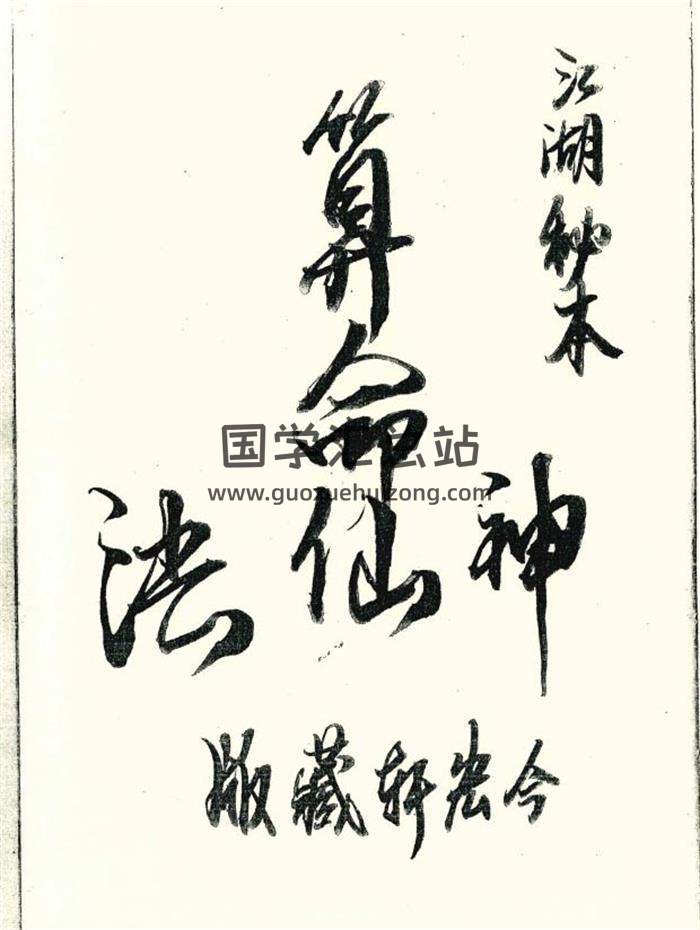 江湖秘本
算命
神仙法
今轩藏版
国学汇总站
www.guoxuehuizong.com